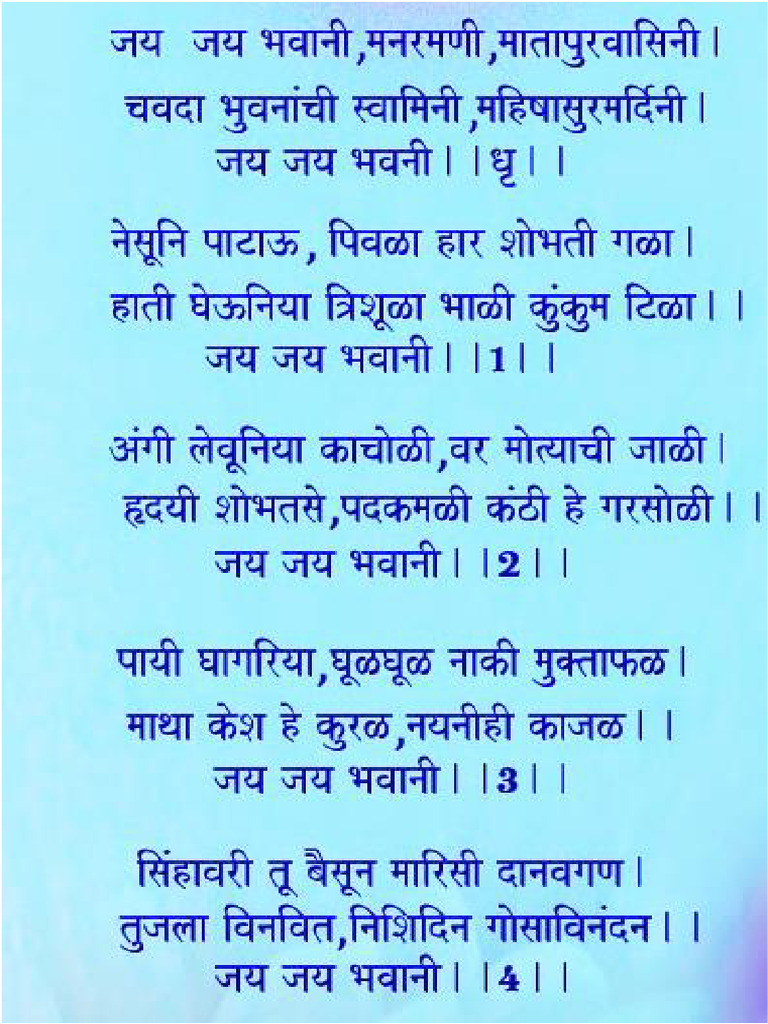 जय जय भवानी,मनरमणी,मातापुरवासिनी।
चवदा भुवनांची स्वामिनी,महिषासुरमर्दिनी।
जय जय भवनी।।धृ।।
नेसूनि पाटाऊ, पिवळा हार शोभती गळा।
हाती घेऊनिया त्रिशूळा भाळी कुंकुम टिळा।।
जय जय भवानी।।1।।
अंगी लेवूनिया काचोळी,वर मोत्याची जाळी।
हृदयी शोभतसे,पदकमळी कंठी हे गरसोळी।।
जय जय भवानी।।2।।
पायी घागरिया,घूळघूळ नाकी मुक्ताफळ।
माथा केश हे कुरळ,नयनीही काजळ।।
जय जय भवानी।।3।।
सिंहावरी तू बैसून मारिसी दानवगण।
तुजला विनवित,निशिदिन गोसाविनंदन।।
जय जय भवानी।।4।।